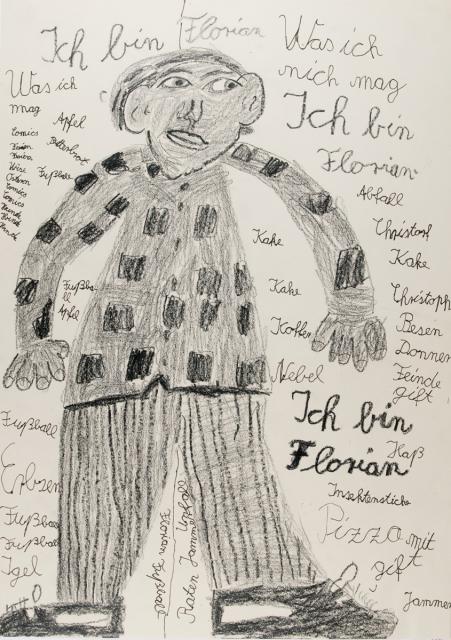 Ich bin Florian
Was ich
mag
Apfel
Comics
Butterbrot
Fußball
Comics
Comics
Was ich
nich mag
Ich bin
Florian
Abfall
Christoph
Kake
Kake
Kake
Christoph
Koffer
Besen
Donner
Nebel
Feinde
gift
Fußba
ll
Apfel
Fußball
Erbsen
Fußball
Fußball
Igel
Ich bin
Florian
Haß
Insektenstiche
Pizza mit
gift
Jammer
Florian Fußball
Raten Jammer Unfall